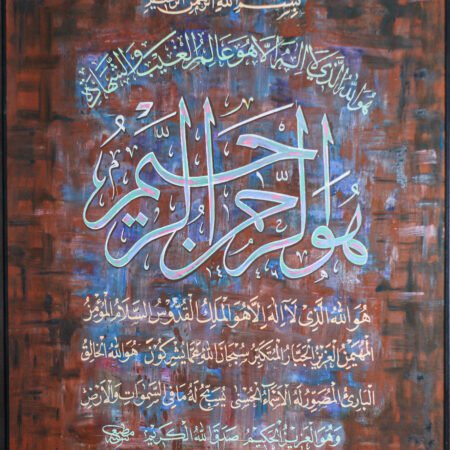 بسم الله الرحمن الرحيم
هو الله الذي لا إله إلا هو عالم الغيب والشهادة
هو الرحمن الرحيم
هو الله الذي لا إله إلا هو الملك القدوس السلام المؤمن
المهيمن العزيز الجبار المتكبر سبحان الله عما يشركون هو الله الخالق
البارئ المصور له الأسماء الحسنى يسبح له ما في السموات والأرض
وهو العزيز الحكيم صدق الله الكريم